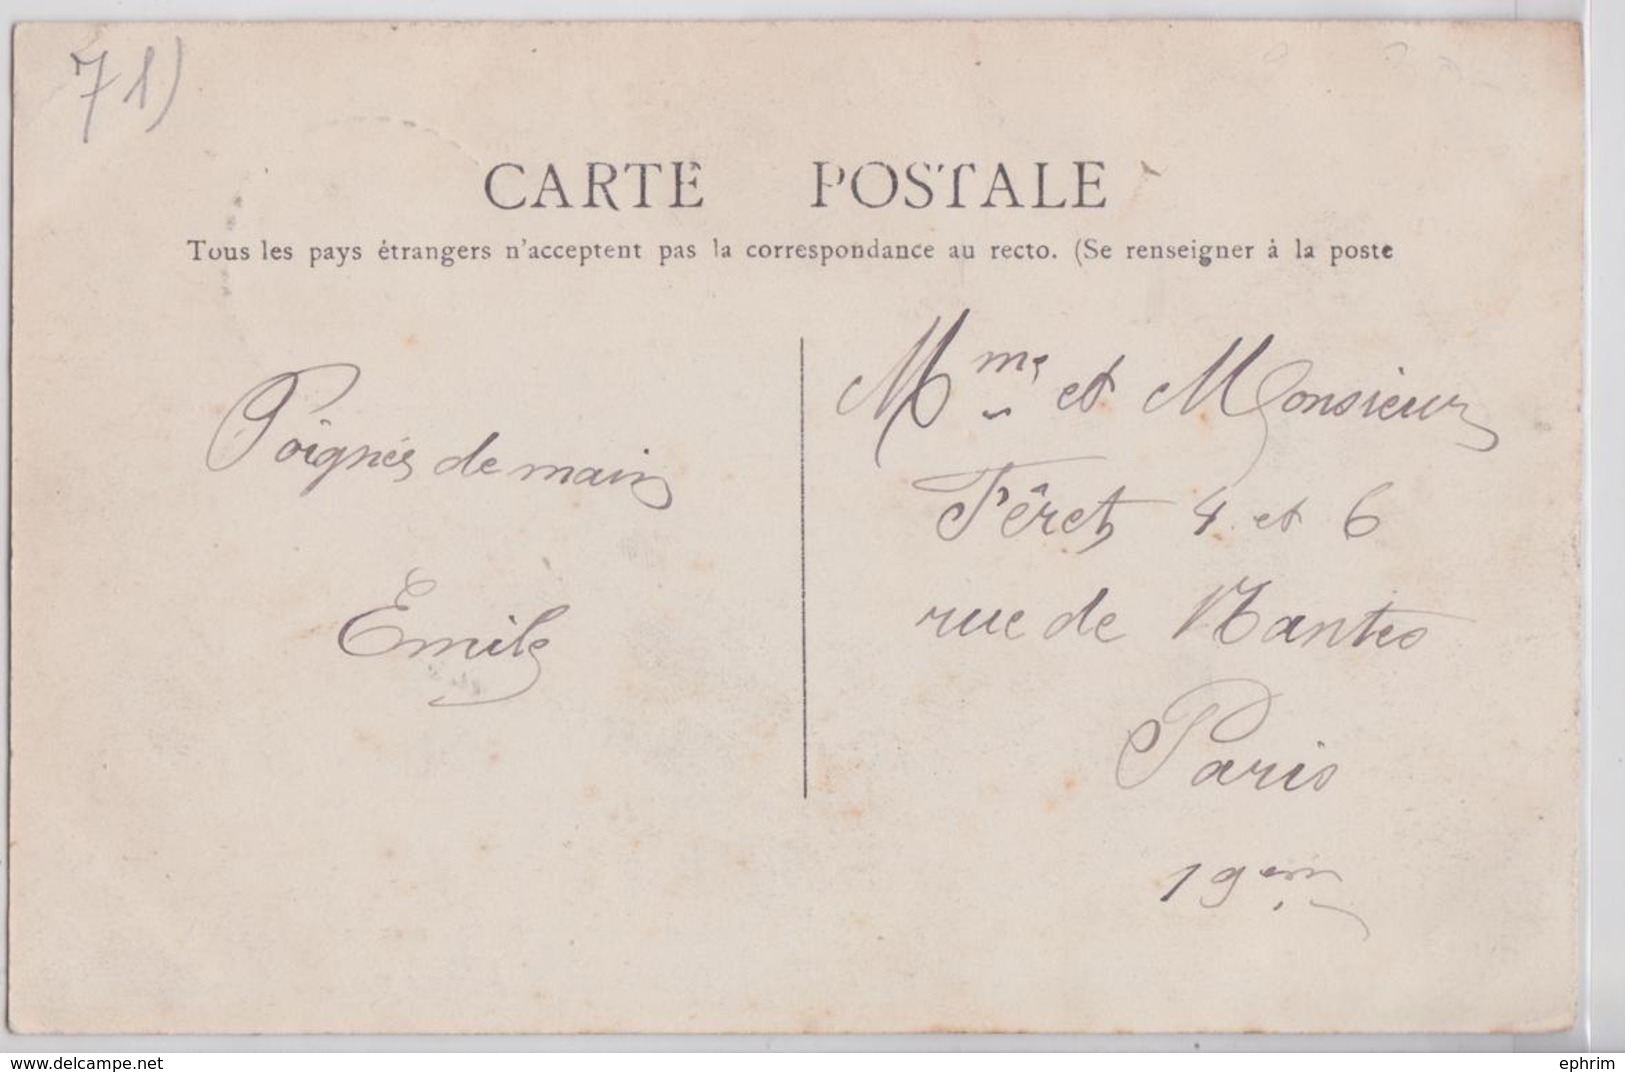 71)
CARTE POSTALE
Tous les pays étrangers n'acceptent pas la correspondance au recto. (Se renseigner à la poste
Poignés de main
Emile
Mme et Monsieur
Fêret 4 et 6
rue de Nantes
Paris
19em
www.delcampe.net
ephrim